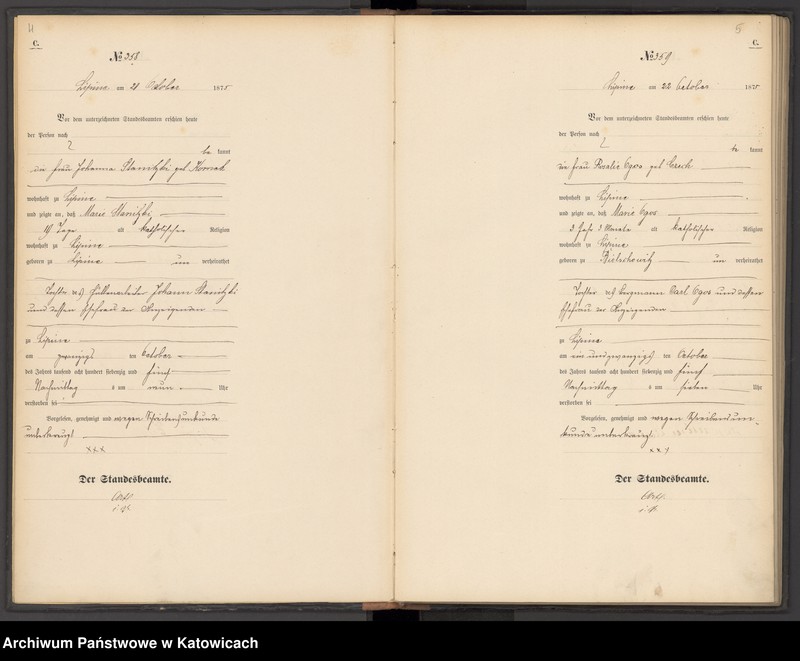 4
C.
No 358
Lipine am 21 October 1875
Vor dem unterzeichneten Standesbeamten erschien heute
der Person nach
be kannt
die Frau Johanna Stanitzki geb.
wohnhaft zu Lipine
und zeigte an, daß Marie Stanitzki
19 Tage alt katholischer Religion
wohnhaft zu Lipine
geboren zu Lipine un verheirathet
Tochter des Hüttenarbeiter Johann Stanitzki
und dessen Ehefrau der Anzeigenden
zu Lipine
am zwanzigs ten October
des Jahres tausend acht hundert siebenzig und fünf
Nachmittag s um neun Uhr
verstorben sei
Vorgelesen, genehmigt und wegen Schreibensunkunde
unterkreuzt
xxx
Der Standesbeamte.
5
C.
No 359
Lipine am 22 October 1875
Vor dem unterzeichneten Standesbeamten erschien heute
der Person nach
be kannt
die Frau Rosalie Ogos geb. Czech
wohnhaft zu Lipine
und zeigte an, daß Marie Ogos
3 Jahr 3 Monate alt katholischer Religion
wohnhaft zu Lipine
geboren zu Bielschowitz un verheirathet
Tochter des Bergmann Carl Ogos und dessen
Ehefrau der Anzeigenden
zu Lipine
am ein und zwanzigs ten October
des Jahres tausend acht hundert siebenzig und fünf
Nachmittag s um sieben Uhr
verstorben sei
Vorgelesen, genehmigt und wegen Schreibensun-
kunde unterkreuzt
xxx
Der Standesbeamte.
Archiwum Państwowe w Katowicach